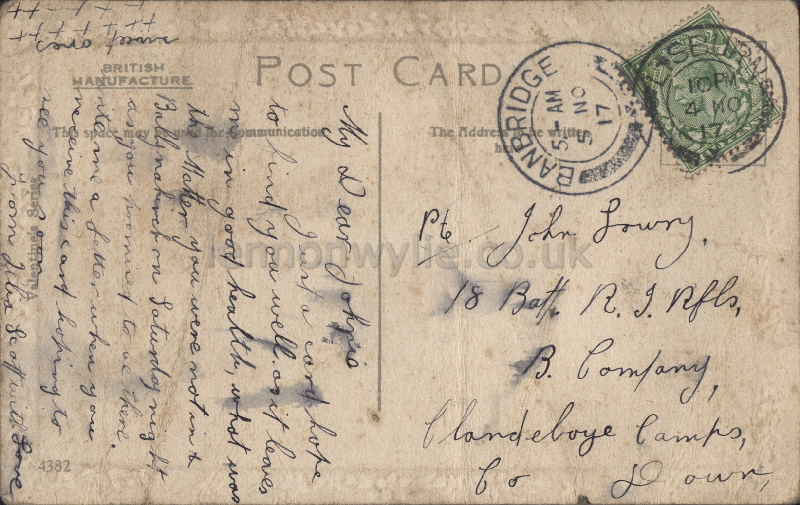 POST CARD
BRITISH
MANUFACTURE
This space may be used for communication
The Address to be written
BANBRIDGE
5 - AM
5 NO
17
10 PM
4 NO
17
My Dear Johnie
Just a card hope
to find you well as it leaves
me in good health, what was
the Matter you were not in
Ballynahinch on Saturday night
as you promised to be there.
write me a letter when you
receive this card hoping to
see you soon
from Julia Scott with love
sweet ones
+ + + +
+ + + +
+ + + +
Pte. John Lowry,
18 Batt. R. I. Rfls,
B. Company,
Clandeboye Camps,
Co Down,
4382
lemonwylie.co.uk